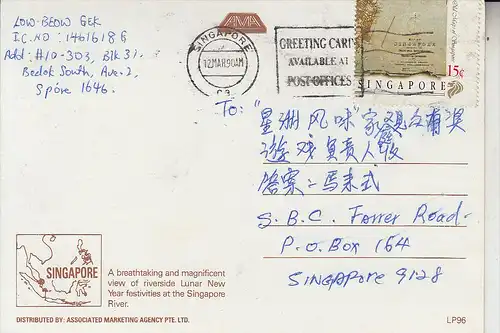 LOW BEOW GEK
I.C. NO : 1461618G
Add: #10-303, Blk 31.
Bedok South, Ave. 2,
S'pore 1646.
AMA
SINGAPORE
12MAR90AM
GREETING CARD
AVAILABLE AT
POST OFFICES
SINGAPORE
15¢
To: "星洲风味"家观众有奖
遊戏負责人收
答案：马来式
S.B.C. Farrer Road.
P.O. Box 164
SINGAPORE 9128
SINGAPORE
A breathtaking and magnificent
view of riverside Lunar New
Year festivities at the Singapore
River.
DISTRIBUTED BY: ASSOCIATED MARKETING AGENCY PTE. LTD.
LP96